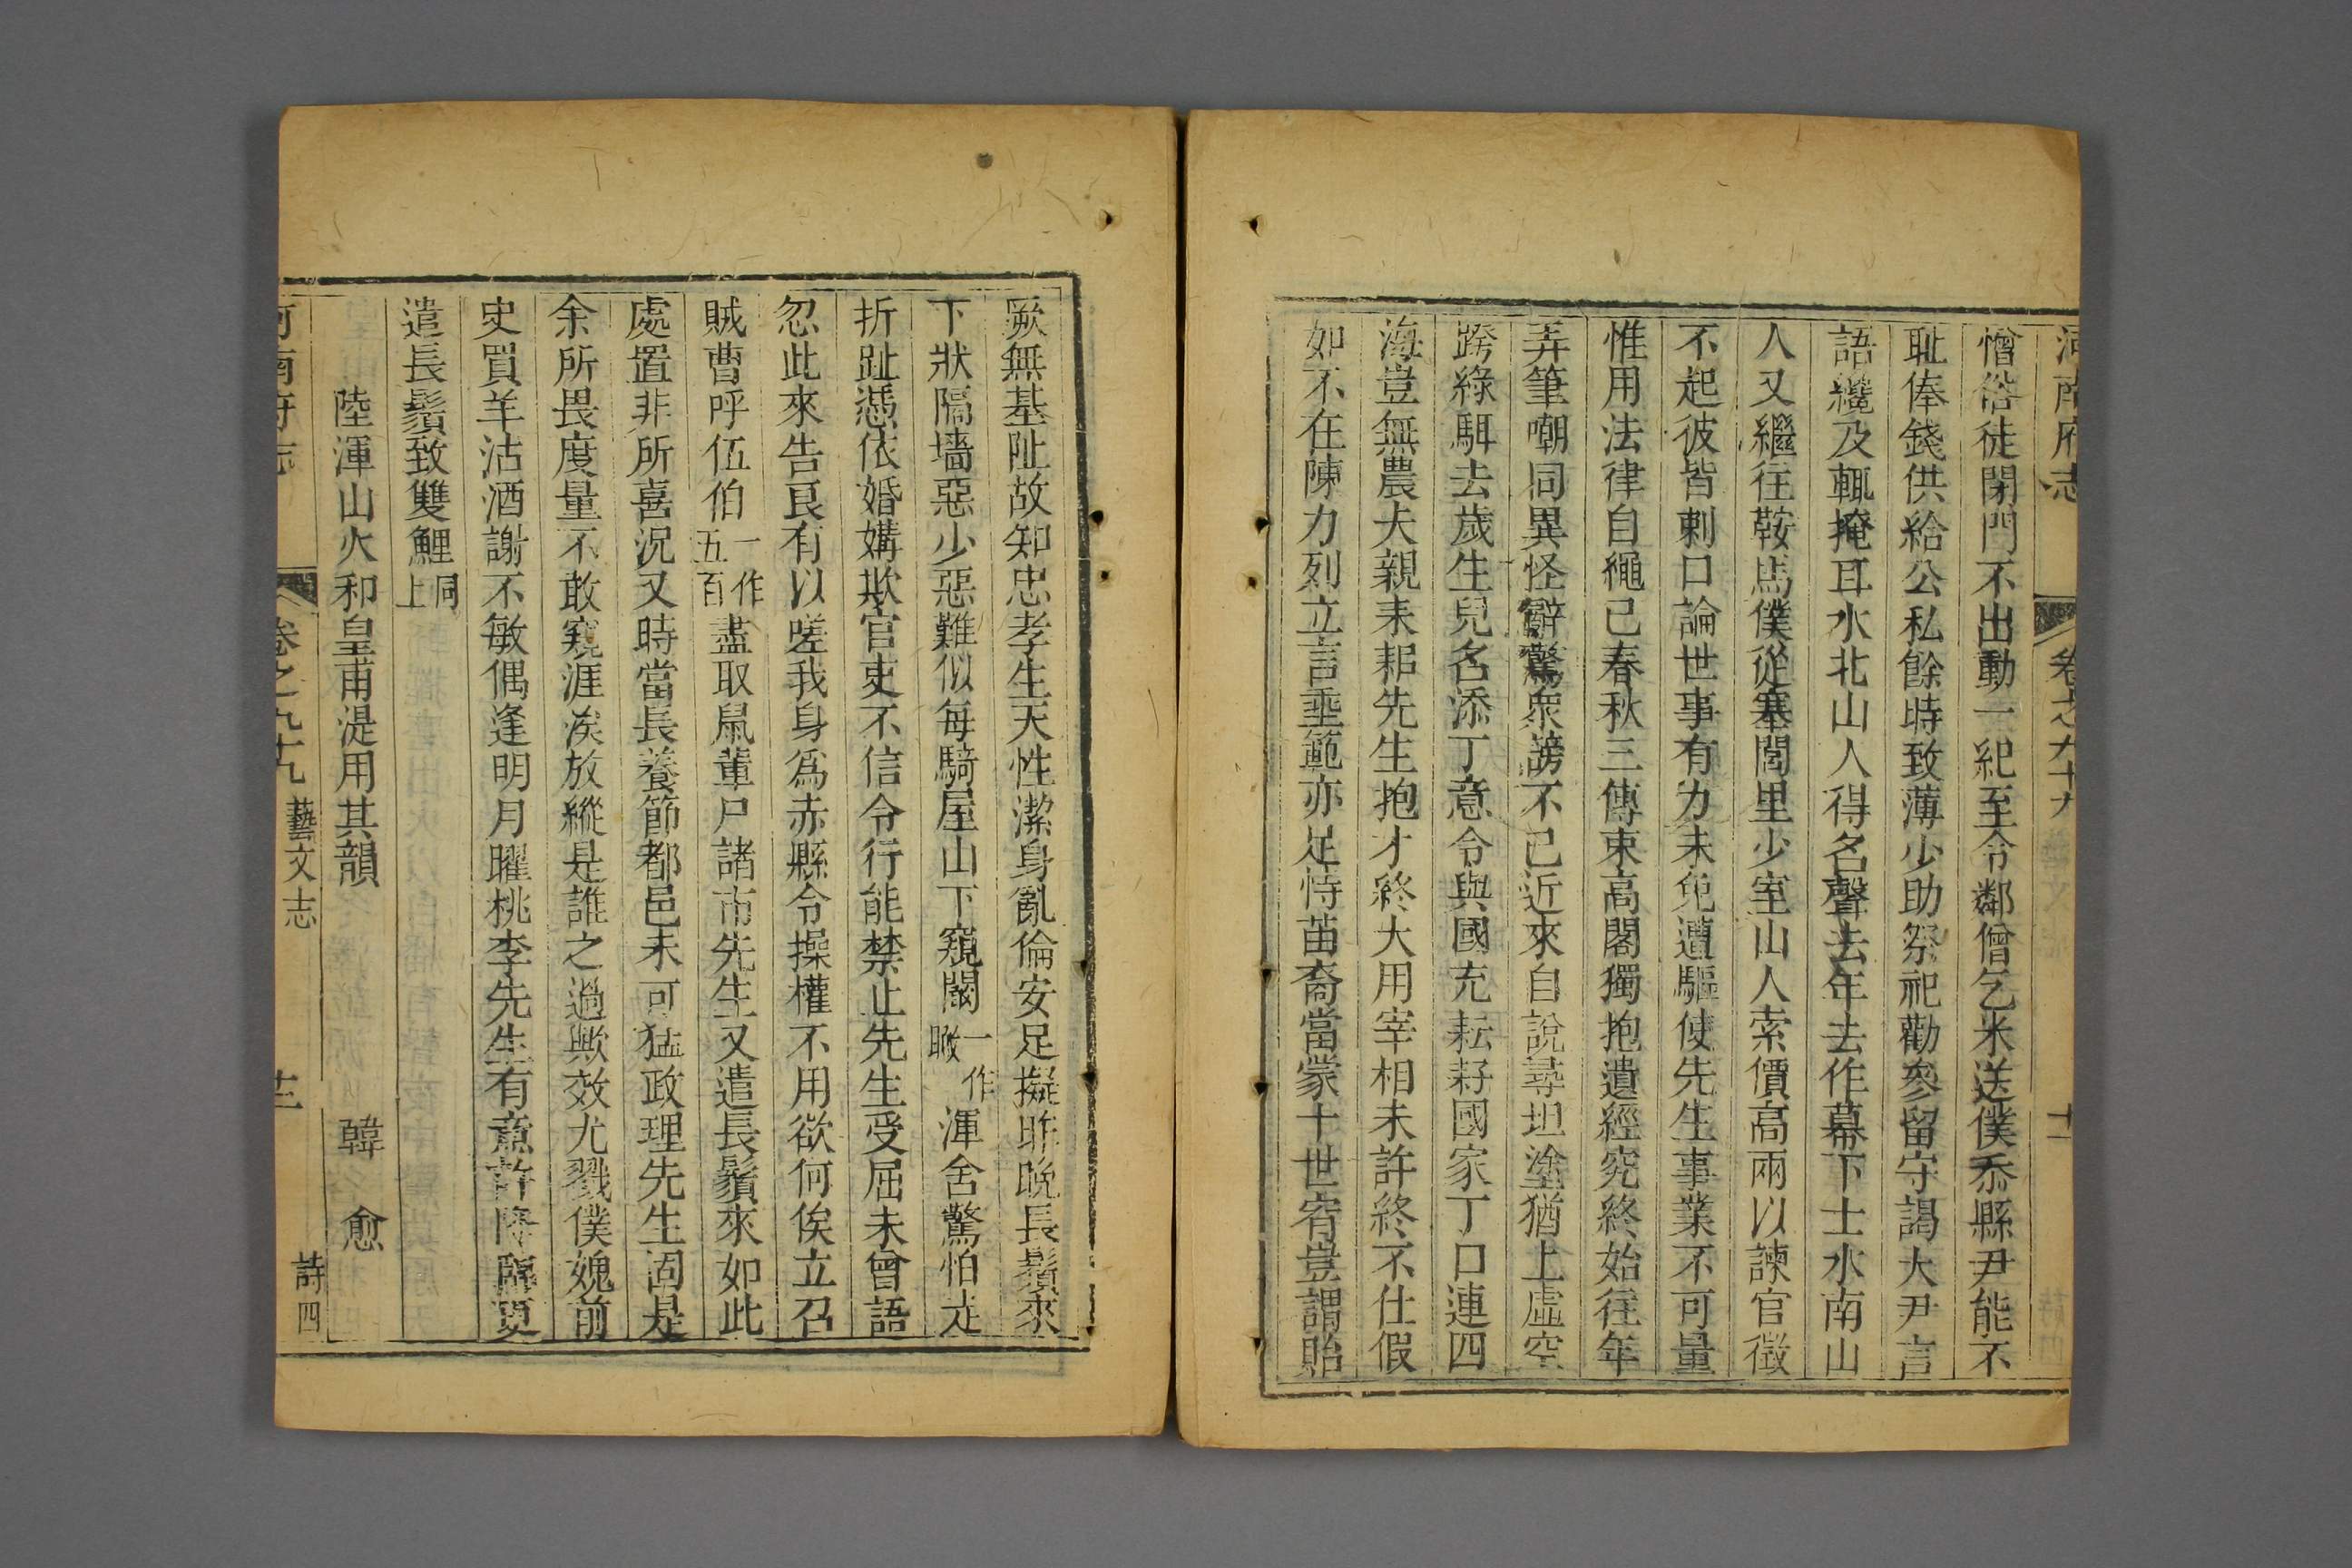 河南府志 卷之九十九 十二
憎俗徒閉門不出動一紀至令鄰僧乞米送僕忝縣尹能不
耻俸錢供給公私餘時致薄少助祭祀勸參留守謁大尹言
語纔及輒掩耳水北山人得名聲去年去作幕下士水南山
人又繼往鞍馬僕從塞閭里少室山人索價高兩以諫官徵
不起彼皆刺口論世事有力未免遭驅使先生事業不可量
惟用法律自繩己春秋三傳束高閣獨抱遺經究終始往年
弄筆嘲同異怪辭驚衆謗不已近來自說尋坦塗猶上虛空
跨綠駬去歲生兒名添丁意令與國充耘耔國家丁口連四
海豈無農夫親耒耜先生抱才終大用宰相未許終不仕假
如不在陳力列立言垂範亦足恃苗裔當蒙十世宥豈謂貽
厥無基阯故知忠孝生天性潔身亂倫安足擬昨晚長鬚來
下狀隔墻惡少惡難似每騎屋山下窺闞一作瞰渾舍驚怕走
折趾憑依婚媾欺官吏不信令行能禁止先生受屈未曾語
忽此來告良有以嗟我身爲赤縣令操權不用欲何俟立召
賊曹呼伍伯一作五百盡取鼠輩尸諸市先生又遣長鬚來如此
處置非所喜況又時當長養節都邑未可猛政理先生固是
余所畏度量不敢窺涯涘放縱是誰之過歟效尤戮僕媿前
史買羊沽酒謝不敏偶逢明月曜桃李先生有意許降臨更
遣長鬚致雙鯉同上
陸渾山火和皇甫湜用其韻 韓愈
河南府志 卷之九十九 藝文志 詩四